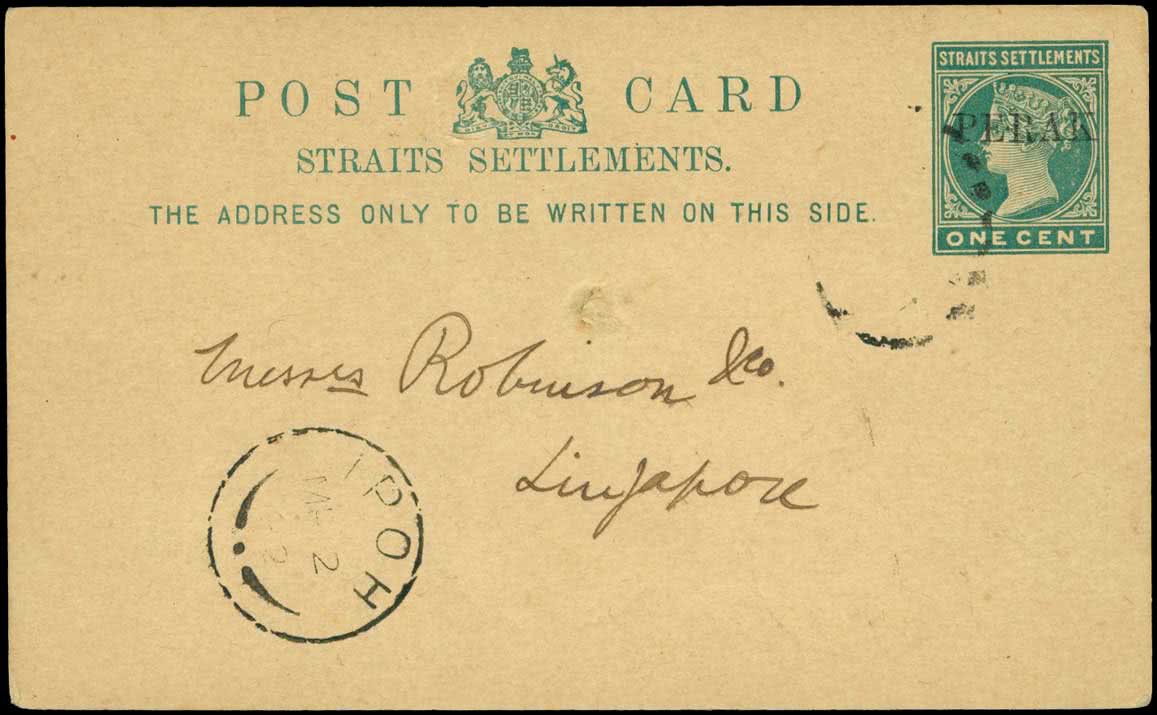 POST CARD
STRAITS SETTLEMENTS.
THE ADDRESS ONLY TO BE WRITTEN ON THIS SIDE.
STRAITS SETTLEMENTS
PERAK
ONE CENT
Messrs Robinson & Co.
Singapore
IPOH